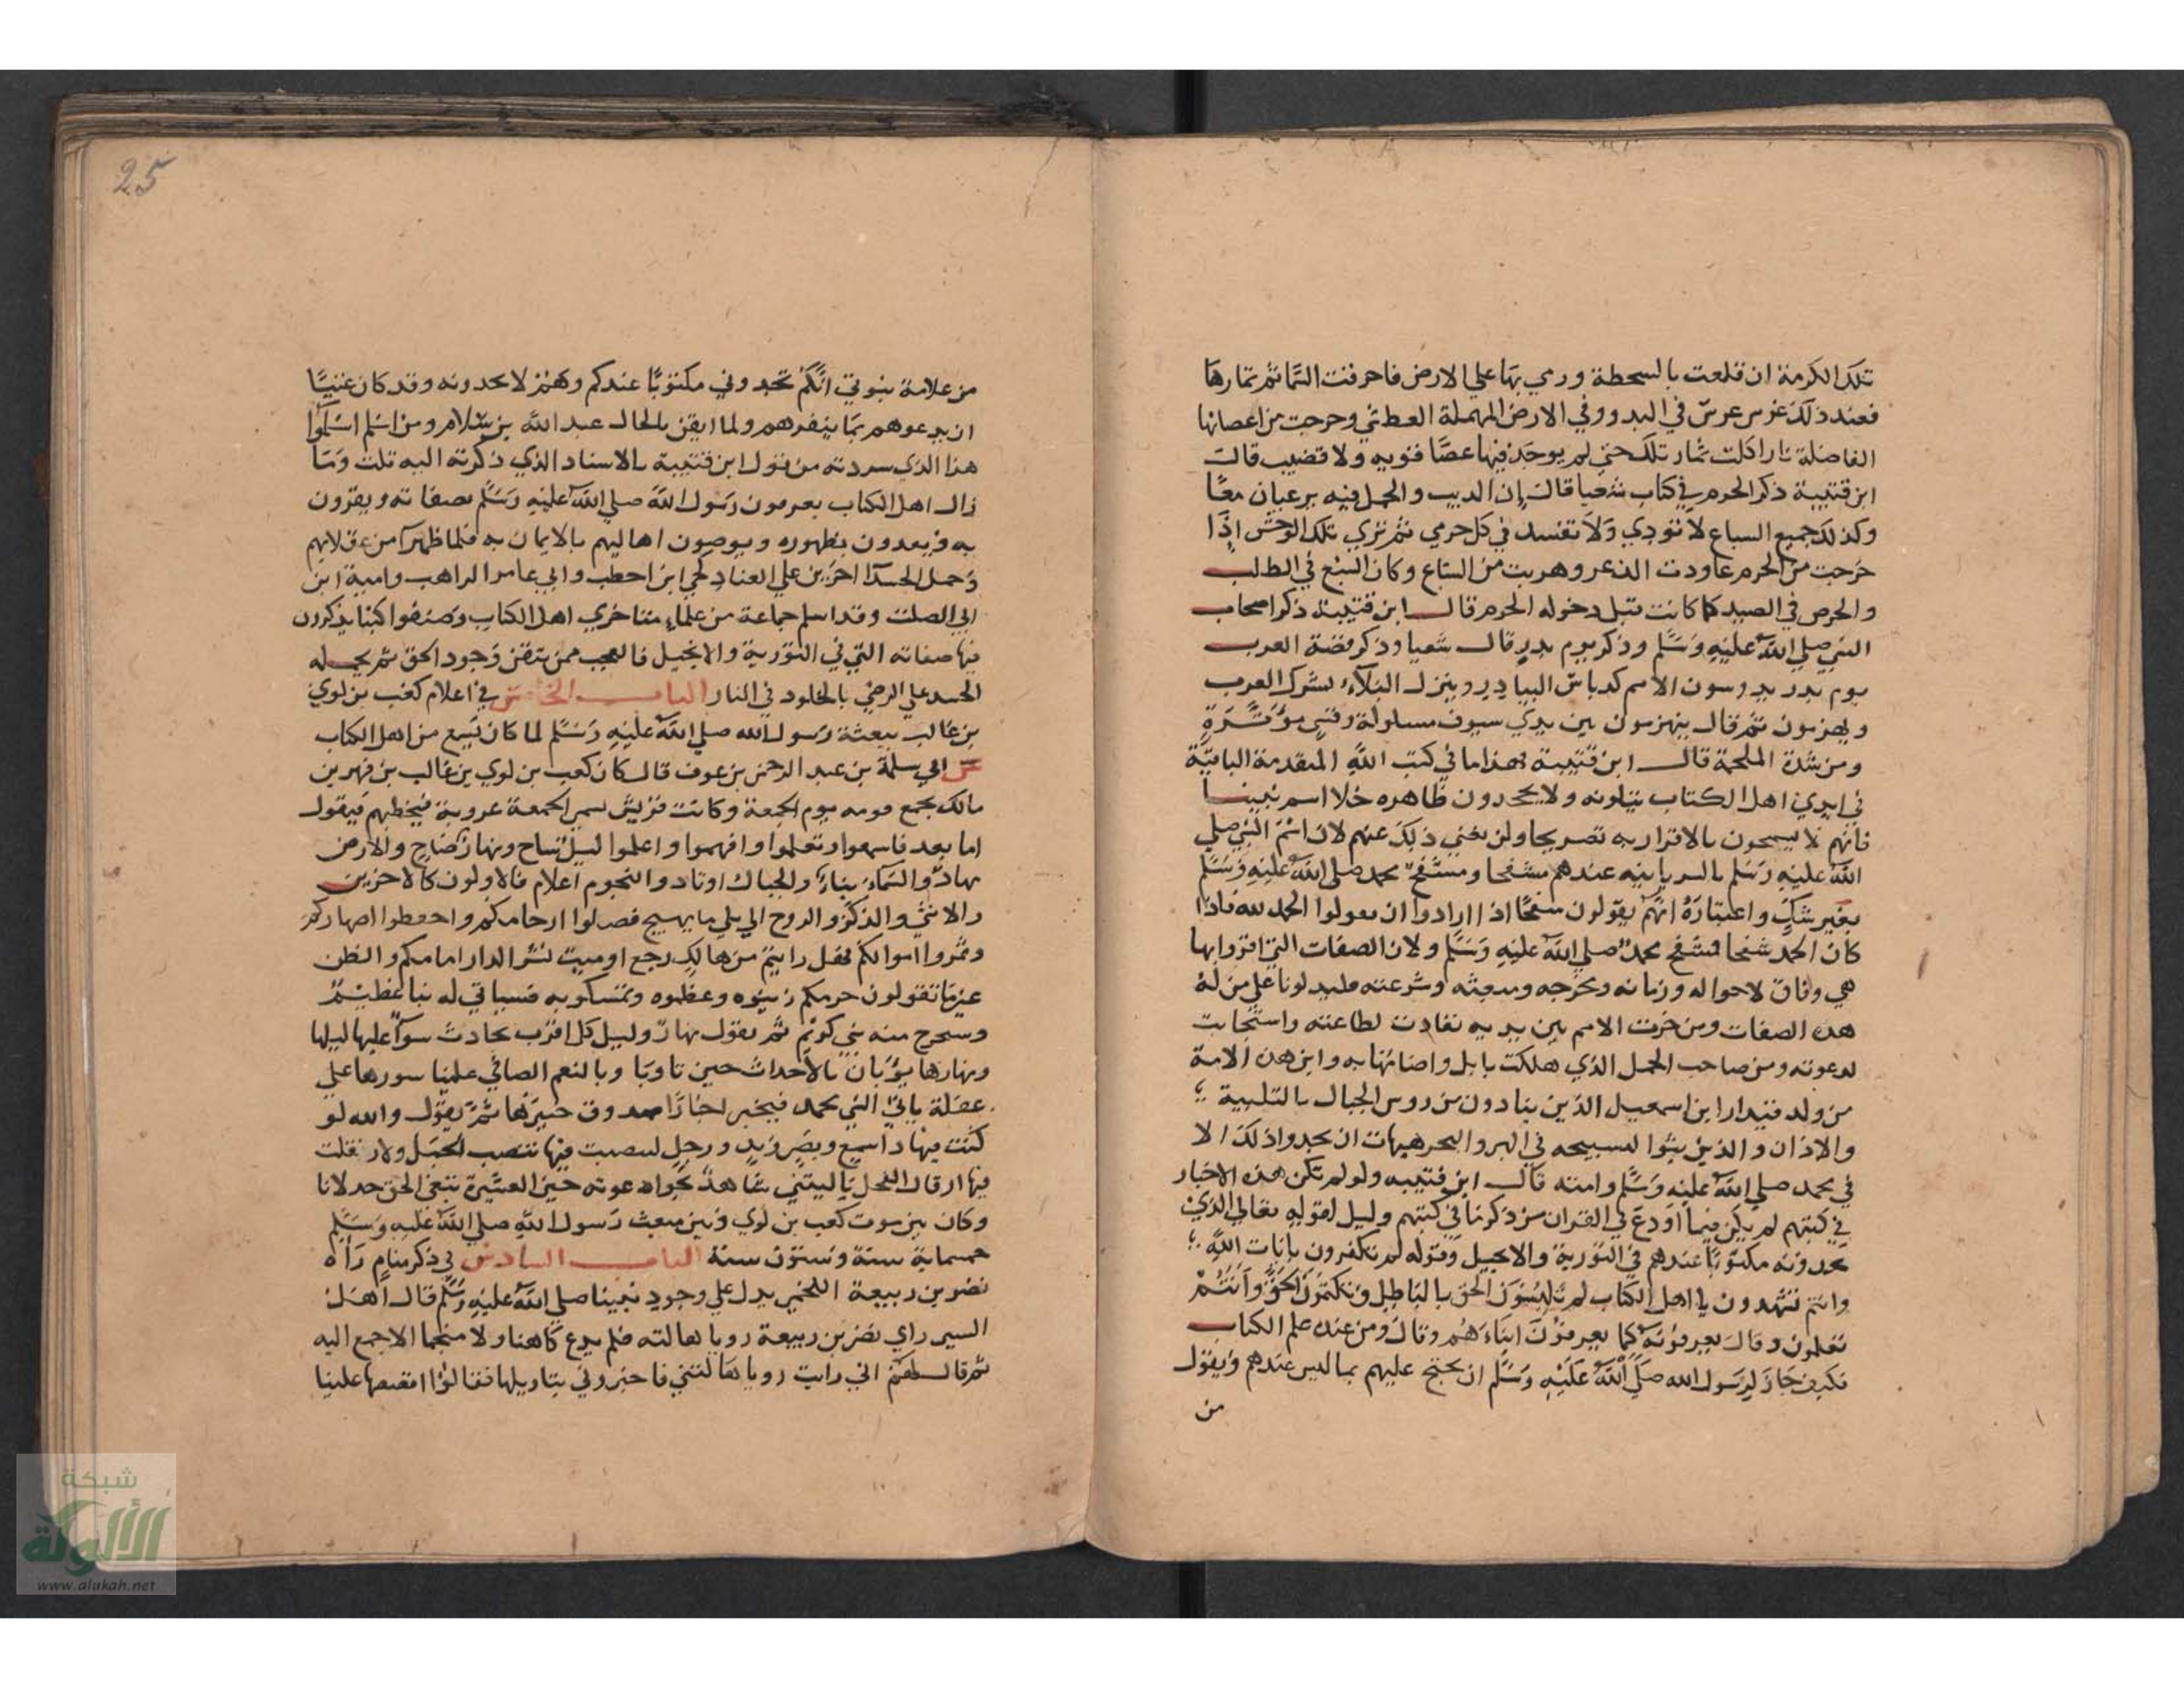 تلك الكرمة ان قلعت بالسخطة ورمي بها على الارض فاحرقت السمائم ثمارها
فعند ذلك غرس غرس في البدو وفي الارض المهملة العطشى وخرجت من اغصانها
الفاضلة نارا اكلت ثمار تلك حتى لم يوجد فيها عصا قويه ولا قضيب قال
ابن قتيبة ذكر الحرم في كتاب شعيا قال إن الديب والجمل فيه يرعيان معًا
وكذلك جميع السباع لا تودي ولا تفسد في كل حرمي ثم تري تلك الوحش اذا
خرجت من الحرم عاودت الذعر وهربت من السباع وكان السبع في الطلب
والحرص في الصيد كما كانت قبل دخوله الحرم قال ابن قتيبة ذكر اصحاب
النبي صلي الله عليه وسلم وذكر يوم بدر قال شعيا وذكر قصة العرب
يوم بدر يدوسون الامم كدياس البيادر وينزل البلآء بشرك العرب
ويهزمون ثم قال ينهزمون بين يدي سيوف مسلولة وقسي موترة
ومن شدة الملحمة قال ابن قتيبة فهذا ما في كتب الله المتقدمة الباقية
في ايدي اهل الكتاب يتلونه ولا يجحدون ظاهره خلا اسم نبينا
فانهم لا يسمحون بالاقرار به تصريحا ولن يغني ذلك عنهم لان اسم النبي صلي
الله عليه وسلم بالسريانيه عندهم مشفحا ومشفح محمد صلى الله عليه وسلم
بغير شك واعتباره انهم يقولون شفحا اذا ارادوا ان يقولوا الحمد لله فاذا
كان الحمد شفحا فمشفح محمد صلي الله عليه وسلم ولان الصفات التي اقروا بها
هي وفاق لاحواله وزمانه ومخرجه ومبعثه وشرعته فليدلونا علي من له
هذه الصفات ومن خرت الامم بين يديه نقادت لطاعته واستجابت
لدعوته ومن صاحب الجمل الذي هلكت بابل واصنامها به واين هذه الامة
من ولد قيدار ابن اسمعيل الذين ينادون من روس الجبال بالتلبية
والاذان والذين بثوا لتسبيحه في البر والبحر هيهات ان يجدوا ذلك الا
في محمد صلي الله عليه وسلم وامته قال ابن قتيبه ولو لم تكن هذه الاخبار
في كتبهم لم يكن فيما اودع في القران من ذكرنا في كتبهم وليل لقوله تعالي الذي
يجدونه مكتوبًا عندهم في التورية والانجيل وقوله لم تكفرون بايات الله
وانتم تشهدون يا اهل الكتاب لم تلبسون الحق بالباطل وتكتمون الحق وانتم
تعلمون وقال يعرفونه كما يعرفون ابناءهم وقال ومن عنده علم الكتاب
فكيف جاز لرسول الله صلي الله عليه وسلم ان يحتج عليهم بما ليس عندهم ويقول
من
25
من علامة نبوتي انكم تجدوني مكتوبًا عندكم وهم لا يجدونه وقد كان غنيًا
ان يدعوهم بما ينفرهم ولما ايقن بالحال عبد الله بن سلام ومن اسلم اسلموا
هذا الذي سردته من قول ابن قتيبة بالاسناد الذي ذكرته اليه قلت وما
زال اهل الكتاب يعرفون رسول الله صلي الله عليه وسلم بصفاته ويقرون
به ويعدون بظهوره ويوصون اهاليهم بالايمان به فلما ظهر آمن عقلاؤهم
وحمل الحسد اخرين علي العناد لحي ابن اخطب وابي عامر الراهب وامية ابن
ابي الصلت وقد اسلم جماعة من علماء متاخري اهل الكتاب وصنفوا كتبا يذكرون
فيها صفاته التي في التورية والانجيل فالعجب ممن يتقن وجود الحق ثم يحمله
الحسد علي الرضي بالخلود في النار الباب الخامس في اعلام كعب بن لوي
بن غالب ببعثة رسول الله صلي الله عليه وسلم لما كان يسمع من اهل الكتاب
عن ابي سلمة بن عبد الرحمن بن عوف قال كان كعب بن لوي بن غالب بن فهر بن
مالك يجمع قومه يوم الجمعة وكانت قريش تسمي الجمعة عروبة فيخطبهم فيقول
اما بعد فاسمعوا وتعلموا وافهموا واعلموا ليل ساح ونهار ضاح والارض
مهاد والسماء بناء والجبال اوتاد والنجوم اعلام فالاولون كالاخرين
والانثي والذكر والروح الي بلي ما يهيج فصلوا ارحامكم واحفظوا اصهاركم
وثمروا اموالكم فهل رايتم من هالك رجع او ميت نشر الدار امامكم والظن
غير ما تقولون حرمكم زينوه وعظموه وتمسكوا به فسياتي له نبا عظيم
وسيخرج منه نبي كريم ثم يقول نهار وليل كل اوب بحادث سواء عليها ليلها
ونهارها يؤبان بالاحداث حين تاوبا وبالنعم الضافي علينا ستورها علي
غفلة ياتي النبي محمد فيخبر اخبارا صدوق خبيرها ثم يقول والله لو
كنت فيها ذا سمع وبصر ويد ورجل لتنصبت فيها تنصب الجمل ولارقلت
فيها ارقال الفحل يا ليتني شاهد نجواء دعوته حين العشيرة تبغي الحق خذلانا
وكان بين موت كعب بن لوي وبين مبعث رسول الله صلي الله عليه وسلم
خمسماية سنة وستون سنة الباب السادس في ذكر منام رآه
نضر بن ربيعة اللخمي يدل علي وجود نبينا صلي الله عليه وسلم قال اهل
السير راي نضر بن ربيعة رويا هالته فلم يدع كاهنا ولا منجما الا جمع اليه
ثم قال لهم اني رايت رويا هالتني فاخبروني بتاويلها فقالوا اقصصها علينا
شبكة
الألوكة
www.alukah.net